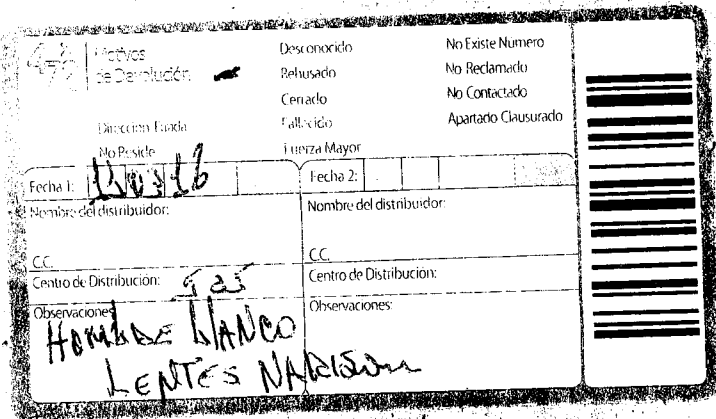 472 Motivos de Devolución
Desconocido
Rehusado
Cerrado
Fallecido
Fuerza Mayor
No Existe Número
No Reclamado
No Contactado
Apartado Clausurado
Dirección Errada
No Reside
Fecha 1:
Fecha 2:
Nombre del distribuidor:
Nombre del distribuidor:
C.C.
C.C.
Centro de Distribución:
Centro de Distribución:
Observaciones:
HOMBRE BLANCO
LENTES
Observaciones: